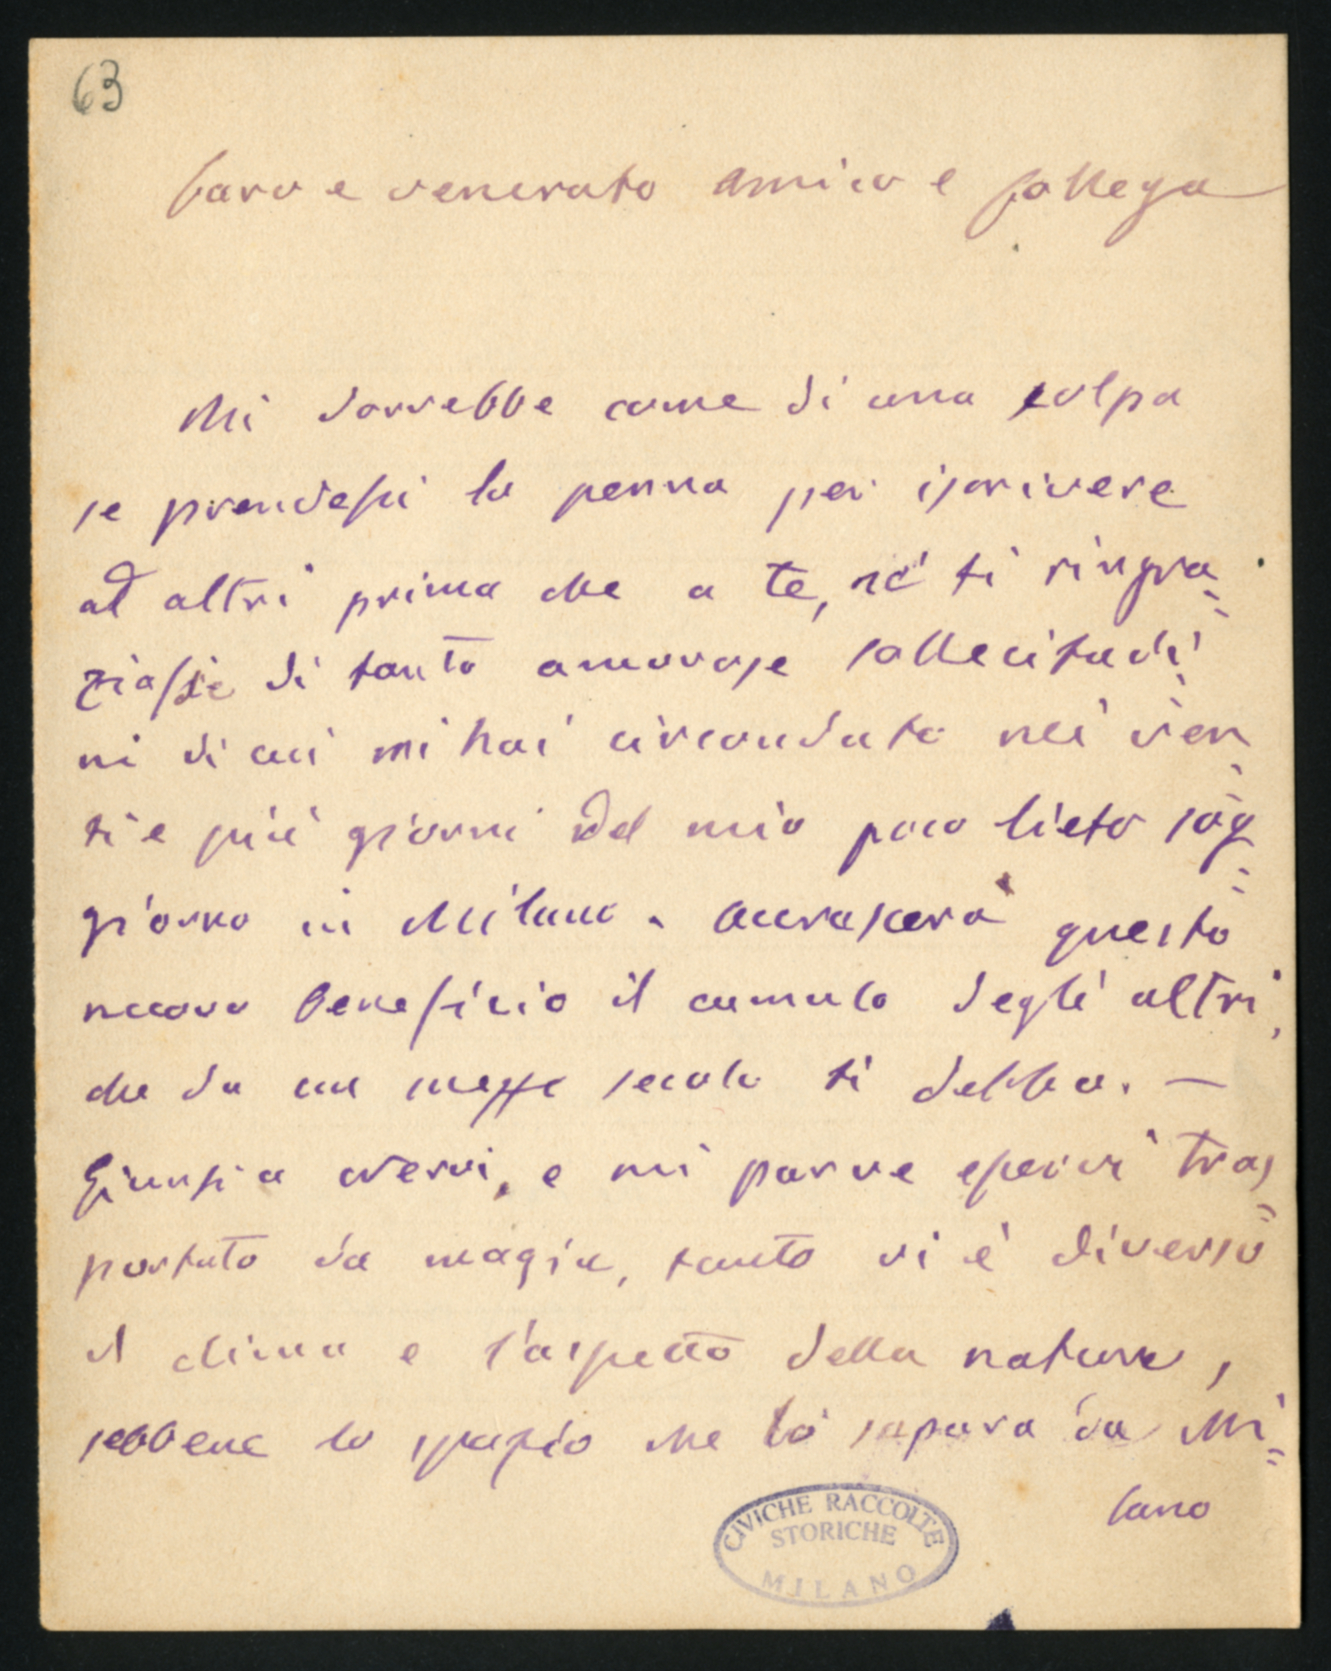 63
Caro e venerato amico e Collega
Mi dorrebbe come di una colpa
se prendessi la penna per iscrivere
ad altri prima che a te, nè ti ringra=
ziassi di tante amorose sollecitudi=
ni di cui mi hai circondato nei ven=
ti e più giorni del mio poco lieto sog=
giorno in Milano. Accrescerà questo
nuovo beneficio il cumulo degli altri,
che da un mezzo secolo ti debbo. —
Giunsi a Nervi, e mi parve esservi tras=
portato da magia, tanto vi è diverso
il clima e l'aspetto della natura,
sebbene lo spazio che lo separa da Mi=
lano
CIVICHE RACCOLTE
STORICHE
MILANO